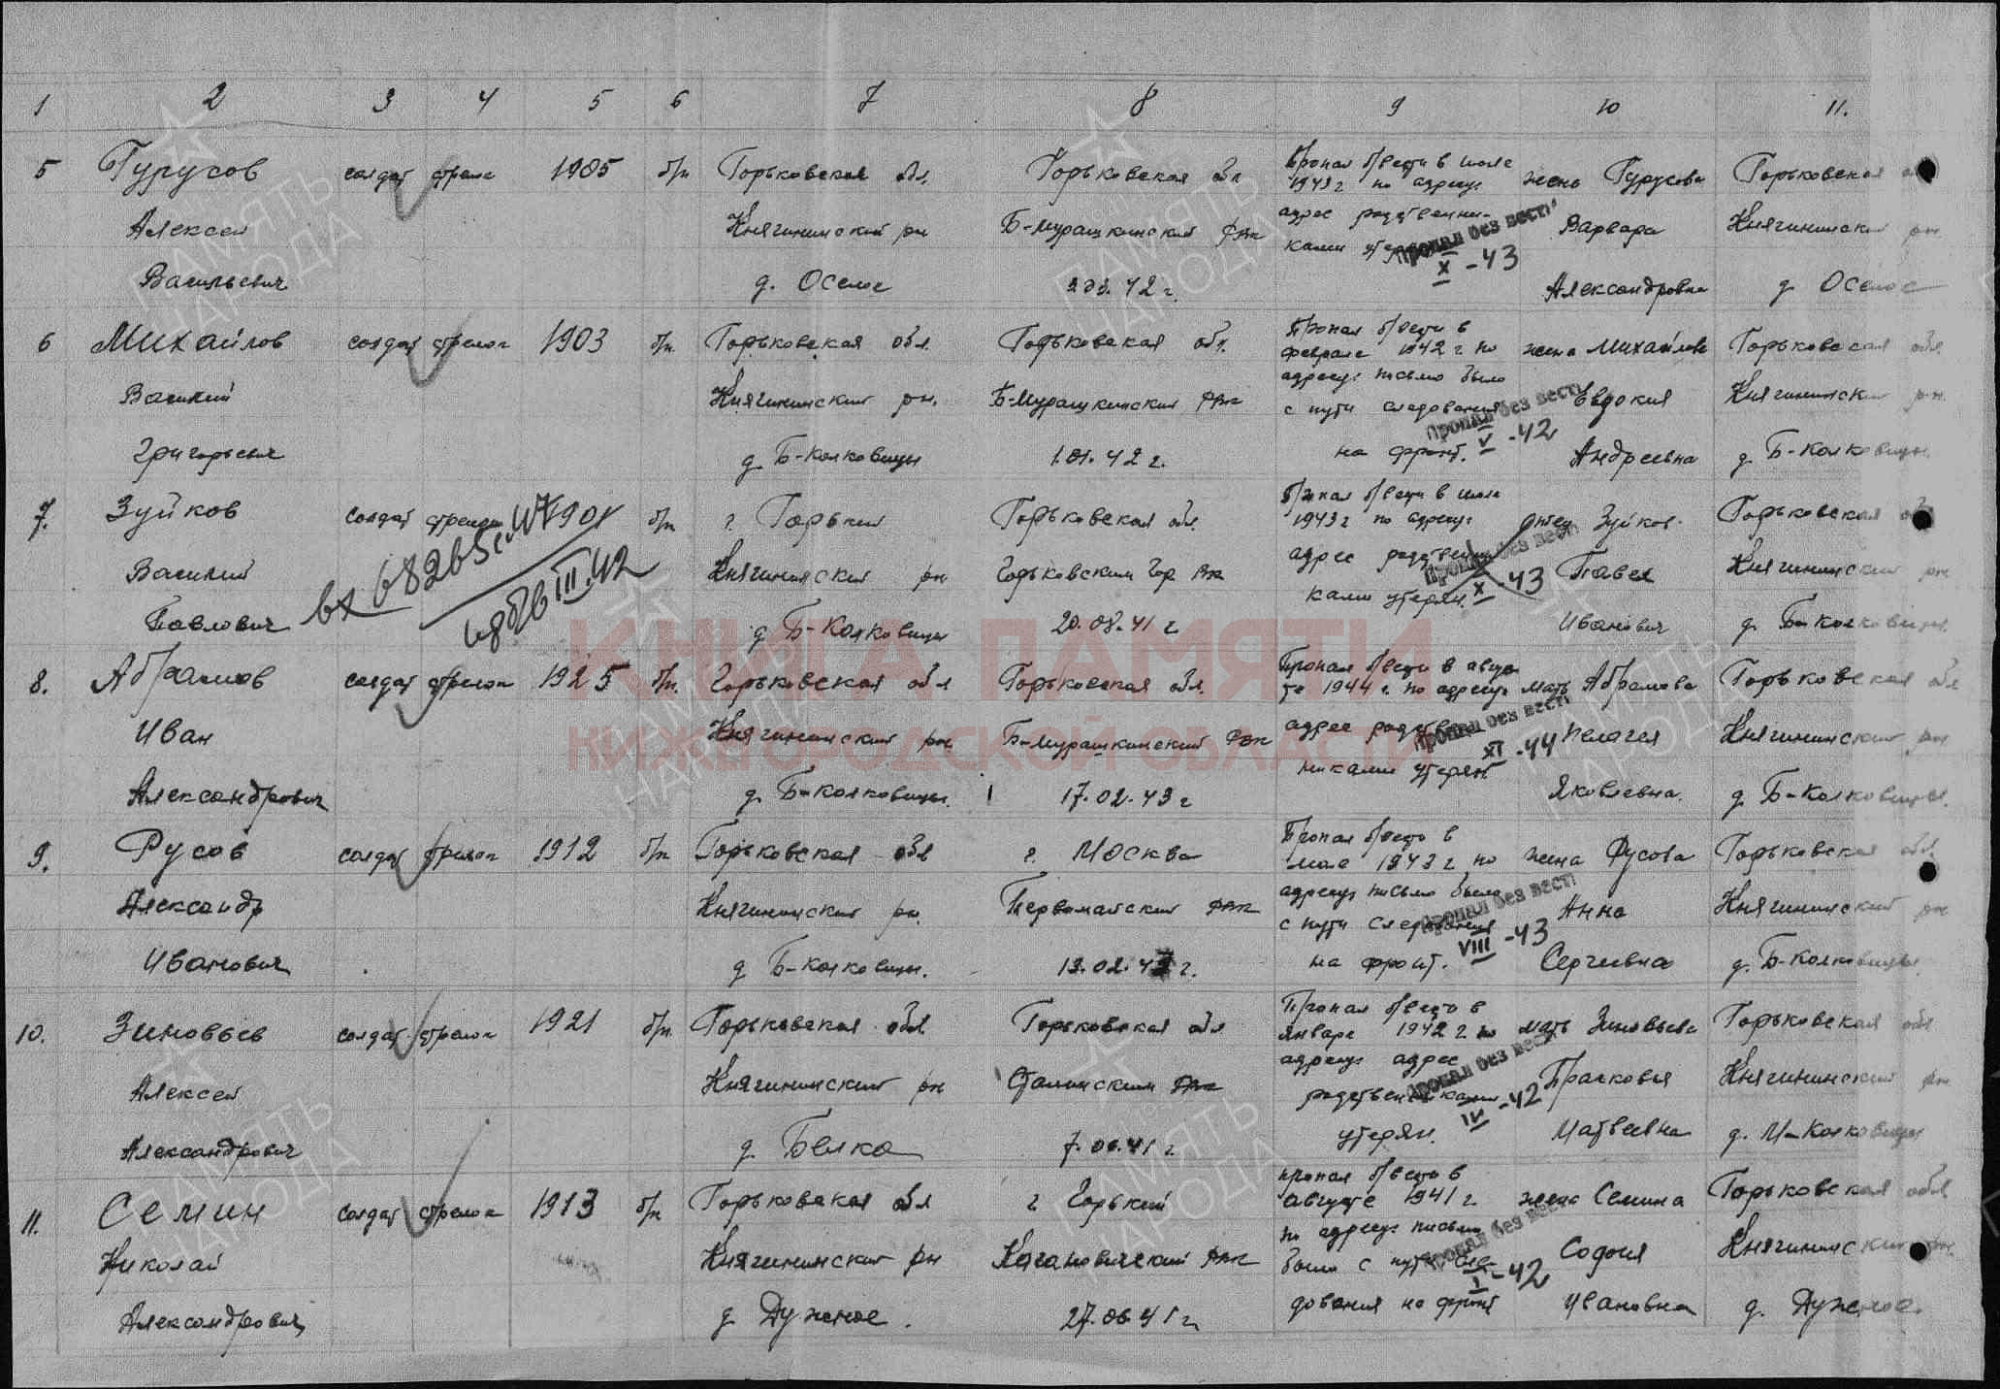 1 2 3 4 5 6 7 8 9 10 11.
5 Гурусов солдат стрелок 1905 б/п Горьковская обл. Горьковская обл Пропал б/вести в июле 1943 г по адресу: жена Гурусова Горьковская
Алексей Княгининский рн Б-Мурашкинский РВК адрес родственни- Варвара Княгининский рн
Васильевич д. Оселое 42 г. ками утерян Пропал без вести X -43 Александровна д Оселое
6 Михайлов солдат стрелок 1903 б/п. Горьковская обл. Горьковская обл. Пропал б/вести в феврале 1942 г по жена Михайлова Горьковская обл
Василий Княгининский рн. Б-Мурашкинский РВК адресу: письмо было с пути следования Евдокия Княгининский рн
Григорьевич д. Б-Колковицы 1.01.42 г. на фронт. Пропал без вести V -42 Андреевна д. Б-Колковицы.
7. Зуйков солдат стрелок б/п г. Горький Горьковская обл. Пропал б/вести в июле 1943 г по адресу: отец Зуйков Горьковская обл
Василий Княгининский рн Горьковский Гор ВК адрес родственни- Павел Княгининский рн
Павлович д Б-Колковицы 20.08.41 г ками утерян. Пропал без вести X -43 Иванович д. Б-Колковицы.
вх 68265с
III.42
8. Абрамов солдат стрелок 1925 б/п. Горьковская обл Горьковская обл. Пропал б/вести в авгус- те 1944 г. по адресу: мать Абрамова Горьковская обл
Иван Княгининский рн Б-Мурашкинский РВК адрес родствен- Пелагея Княгининский рн
Александрович д. Б-Колковицы. 17.02.43 г никами утерян Пропал без вести XI -44 Яковлевна. д. Б-Колковицы.
9. Русов солдат стрелок 1912 б/п Горьковская обл г. Москва Пропал б/вести в мае 1943 г по жена Русова Горьковская обл
Александр Княгининский рн. Первомайский РВК адресу: письмо было с пути следования Анна Княгининский рн
Иванович д Б-Колковицы. 13.02.43 г. на фронт. Пропал без вести VIII -43 Сергеевна д. Б-Колковицы
10. Зиновьев солдат стрелок 1921 б/п. Горьковская обл Горьковская обл Пропал б/вести в январе 1942 г по мать Зиновьева Горьковская обл
Алексей Княгининский рн Сталинский РВК адресу: адрес родственниками Прасковья Княгининский рн
Александрович д. Белка 7.06.41 г утерян. Пропал без вести IV -42 Матвеевна д. М-Колковицы
11. Семин солдат стрелок 1913 б/п Горьковская обл г Горький пропал б/вести в августе 1941 г жена Семина Горьковская обл
Николай Княгининский рн Кагановический РВК по адресу: письмо было с пути сле- София Княгининский рн.
Александрович д. Дужное. 27.06.41 г. дования на фронт Пропал без вести I -42 Ивановна д. Дужное.
КНИГА ПАМЯТИ
НИЖЕГОРОДСКОЙ ОБЛАСТИ
ПАМЯТЬ
НАРОДА